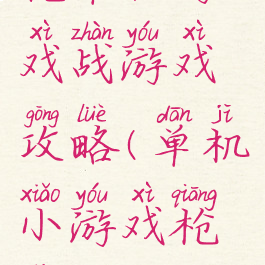 xì zhàn yóu xì
戏战游戏
gōng lüè dān jī
攻略(单机
xiǎo yóu xì qiāng
小游戏枪